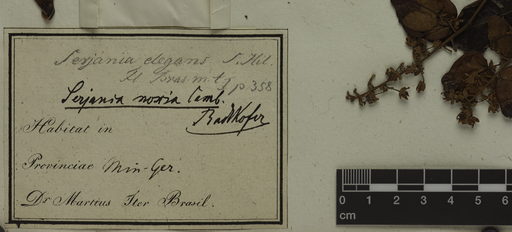 Serjania elegans St. Hil.
Fl. Bras. m. t. I p 358
Serjania noxia Camb.
Radlkofer
Habitat in
Provinciae Min-Ger.
Dr Martius Iter Brasil.
cm
0 1 2 3 4 5 6